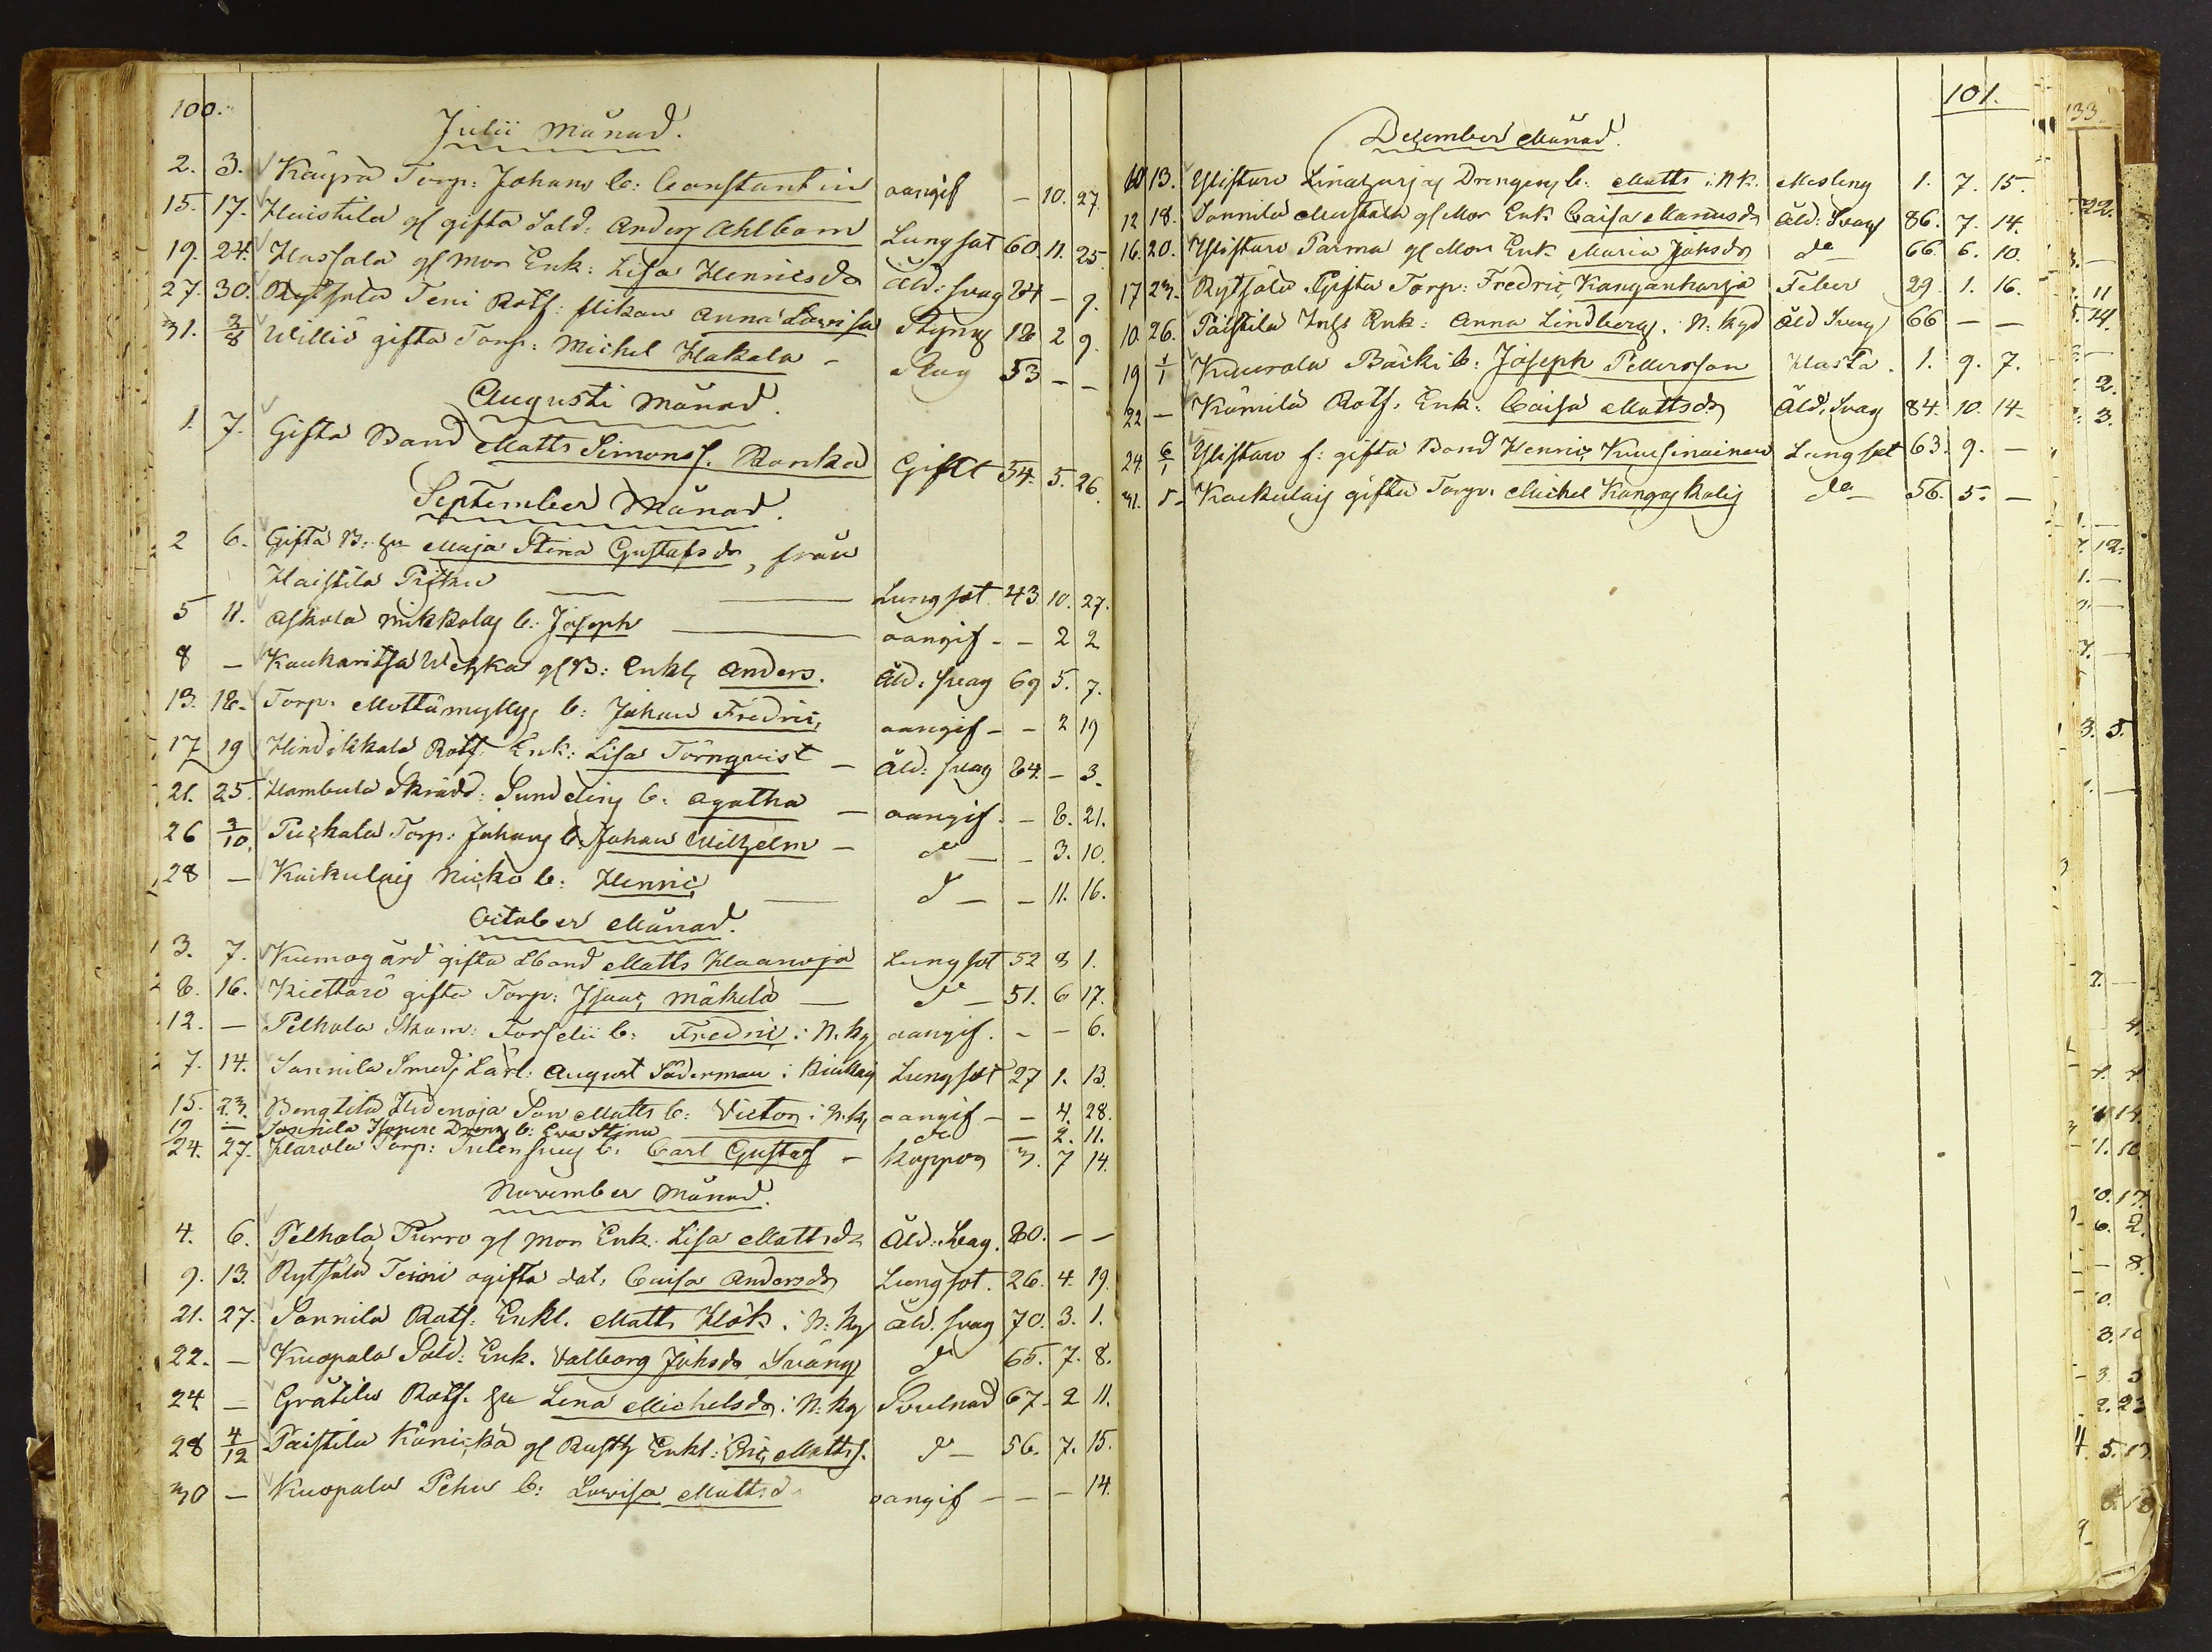 100.
Julii Månad.
2. 3. Käyrä Torp: Johans b: Constantin oangif - 10. 27.
15. 17. Haistila gl gifta Sold: Anders Ahlbom Lungsot 60. 11. 25.
19. 24. Hassala gl Mor Enk: Lisa Henricsdr Åld: svag 84 - 9.
27. 30. Rytsälä Teni Rotf: flikan Anna Lovisa Styng 18 2 9.
31. 3/8 Williö gifta Torp: Michel Hakala - Slag 53 - -
Augusti Månad.
1. 7. Gifta Bond Matts Simonss. Ronka Gikt 54. 5. 26.
September Månad.
2 6. Gifta B: hu Maja Stina Gustafsdr, från
Haistila Pitku Lungsot 43 10. 27.
5 11. Askola Mikkolas b: Joseph oangif - - 2 2
8 - Kaukaritsa Uotka gl B: Enkl Anders. Åld: svag 69 5. 7.
13. 18. Torp: Mottämylly b: Johan Fredric oangif - - 2 19
17 19 Hindikkala Rotf: Enk: Lisa Törnqvist - Åld: svag 84. - 3.
21. 25. Hambula Skrädd: Sundelins b: Agatha - oangif. - 8. 21.
26 3/10. Tuiskala Torp: Johans b: Johan Wilhelm - do - - 3. 10.
28 - Kaikulais Nicko b: Henric do - - 11. 16.
October Månad.
3. 7. Kumogård gifta Lbond Matts Haanoja Lungsot 52 8 1.
8. 16. Kiettarö gifta Torp: Isaac Mäkelä - do - 51. 6 17.
12. - Pelhola Skom: Forselii b: Fredric i N. ky oangif. - - 6.
7. 14. Sonnila Smeds Lärl: August Söderman i Lungsot 27 1. 13.
15. 23. Bengtilä Hidenoja Son Matts b: Victor i N. k oangif - - 4. 28.
19 - Sonnila Dreng b: Eva Stina do - 2. 11.
24. 27. Harola Torp: b: Carl Gustaf - koppor 3. 7 14.
November Månad.
4. 6. Pelhola Purro gl Mor Enk. Lisa Mattsdr Åld: Svag. 80. - -
9. 13. Rytsälä Teini ogifta dot: Caisa Andersdr Lungsot. 26. 4. 19.
21. 27. Sonnila Rotf: Enkl. Matts Hök i N: ky Åld. svag 70. 3. 1.
22. - Knopala Sold: Enk. Valborg Johsdr Sväng do 65. 7. 8.
24 - Gråtila Rotf. hu Lena Michelsdr i N: ky Svulnad 67 - 2 11.
28 4/12 Paistila Könickä gl Rusth Enkl: Eric Mattss. do - 56. 7. 15.
30 - Knopala Pehu b: Lovisa Mattsd oangif - - - 14.
101.
December Månad.
10 13. Ylistaro Linaharjas Drengens b: Matts i N k. Mesling 1. 7. 15.
12 18. Sonnila Mustala gl Mor Enk Caisa Mansdr Åld: Svag 86. 7. 14.
16. 20. Ylistaro Parma gl Mor Enk Maria Johsdr do 66. 6. 10.
17 23. Rytsälä Gifta Torp: Fredric Kanganharja Feber 29. 1. 16.
10. 26. Paistila Inhs Enk: Anna Lindberg i N: kyd Åld Svag 66 - -
19 1/1 Kuurola Bäcki b: Joseph Pettersson Hosta. 1. 9. 7.
22 - Kömilä Rotf. Enk: Caisa Mattsdr Åld. Svag 84. 10. 14.
24 6/1 Ylistaro f: gifta Bond Henric Kuusinainen Lungsot 63. 9. -
31. 5 - Kackulais gifta Torp: Michel Kangas kalij do - 56. 5. -
133.